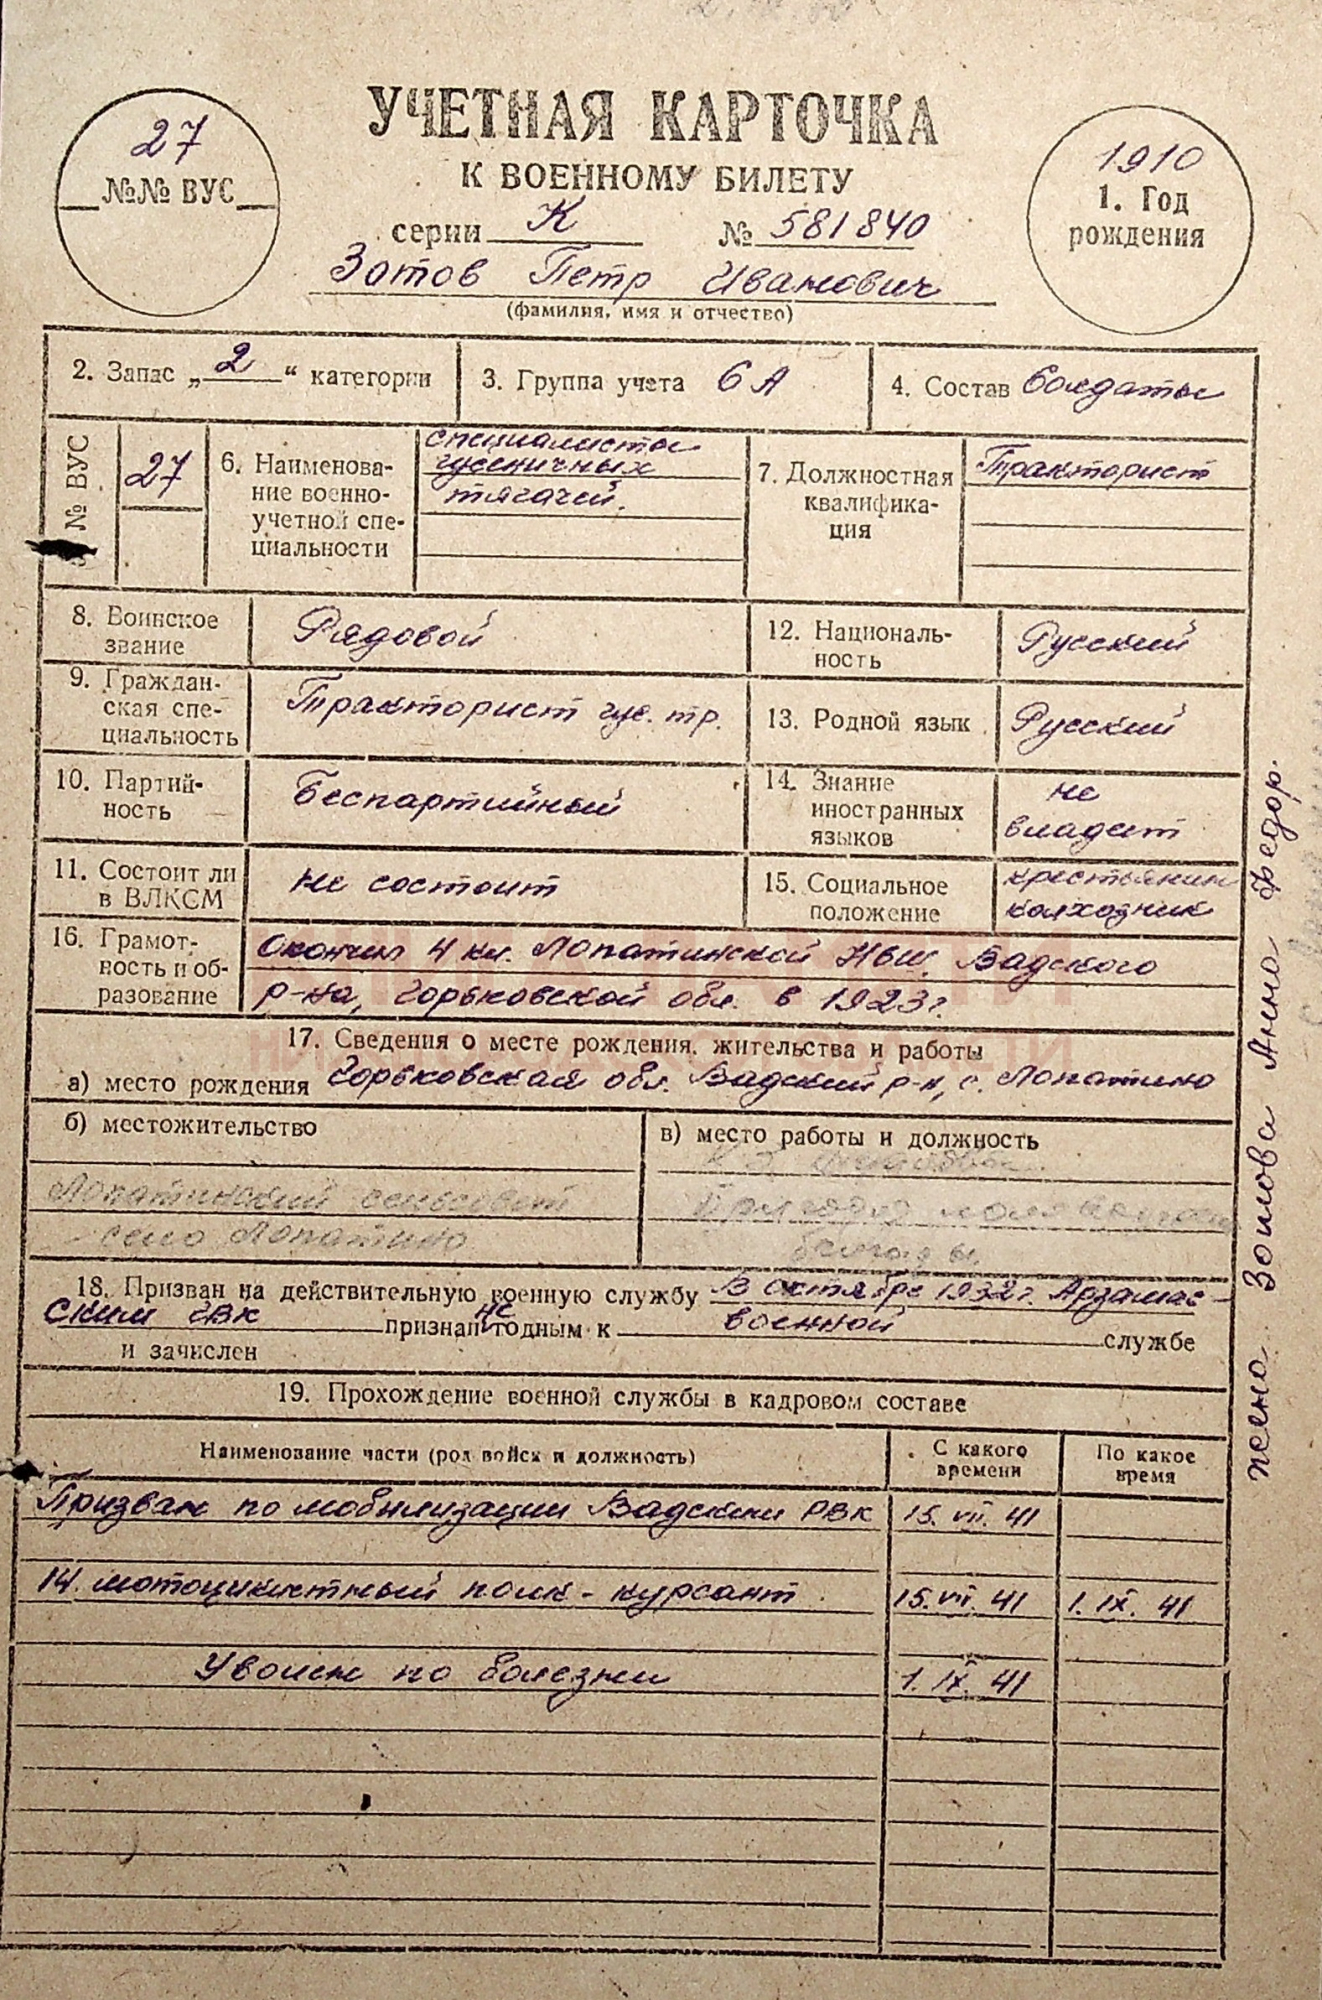 УЧЕТНАЯ КАРТОЧКА
К ВОЕННОМУ БИЛЕТУ
27
№№ ВУС
1910
1. Год
рождения
серии К № 581840
Зотов Петр Иванович
(фамилия, имя и отчество)
2. Запас „2“ категории
3. Группа учета 6 А
4. Состав Солдаты
№ ВУС
27
6. Наименова-
ние военно-
учетной спе-
циальности
специалисты
гусеничных
тягачей.
7. Должностная
квалифика-
ция
Тракторист
8. Воинское
звание
Рядовой
12. Националь-
ность
Русский
9. Граждан-
ская спе-
циальность
Тракторист гус. тр.
13. Родной язык
Русский
10. Партий-
ность
Беспартийный
14. Знание
иностранных
языков
не
владеет
11. Состоит ли
в ВЛКСМ
не состоит
15. Социальное
положение
крестьянин
колхозник
16. Грамот-
ность и об-
разование
Окончил 4 кл. Лопатинской НСШ, Вадского
р-на, Горьковской обл. в 1923г.
17. Сведения о месте рождения, жительства и работы
а) место рождения Горьковская обл. Вадский р-н, с. Лопатино
б) местожительство
Лопатинский сельсовет
село Лопатино
в) место работы и должность
бригады.
18. Призван на действительную военную службу В октябре 1932г. Арзамас-
ским ГВК признан не годным к военной службе
и зачислен
19. Прохождение военной службы в кадровом составе
Наименование части (род войск и должность)
С какого
времени
По какое
время
Призван по мобилизации Вадским РВК 15. VII. 41
14. мотоциклетный полк - курсант 15. VII. 41 1. IX. 41
Уволен по болезни 1. IX. 41
жена Зотова Анна Федор.